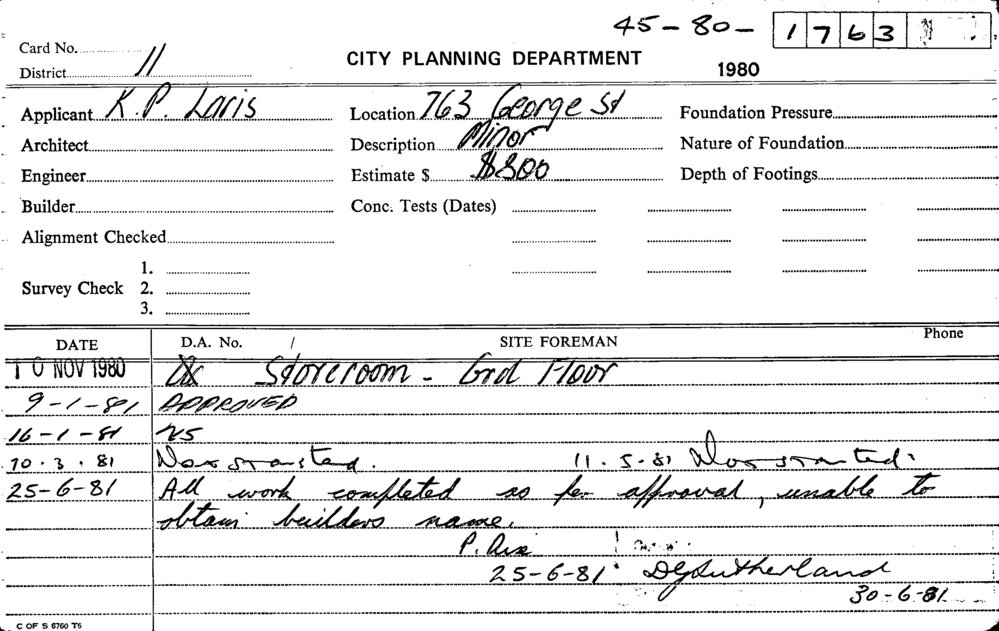 45-80- 1763
Card No.
District 11
CITY PLANNING DEPARTMENT
1980
Applicant K.P. Laris
Location 763 George St
Foundation Pressure
Architect
Description Minor
Nature of Foundation
Engineer
Estimate $ $800
Depth of Footings
Builder
Conc. Tests (Dates)
Alignment Checked
Survey Check
1.
2.
3.
DATE D.A. No. / SITE FOREMAN Phone
10 NOV 1980 Storeroom - Grd Floor
9-1-81 APPROVED
16-1-81 NS
10.3.81 Not started. 11.5.81 Not started.
25-6-81 All work completed as per approval, unable to
obtain builders name.
P.
25-6-81 DGSutherland
30-6-81
C OF S 6760 T6